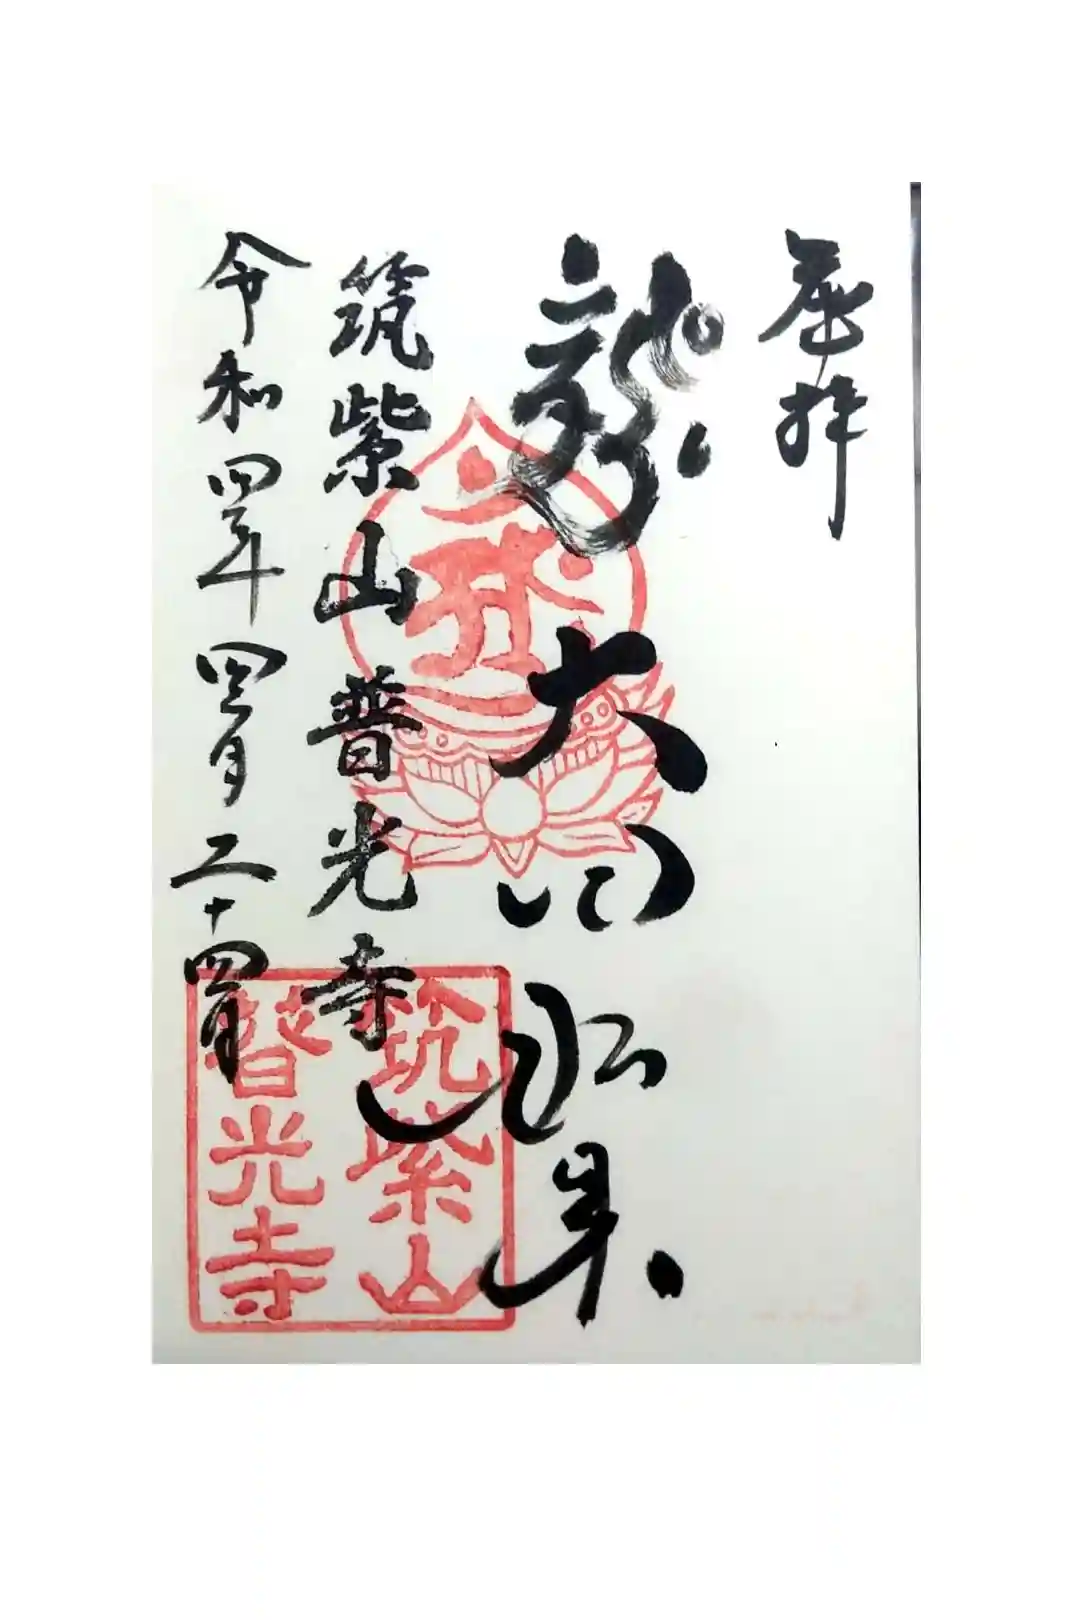 奉拝
龍大日如来
筑紫山普光寺
令和四年四月二十四日
筑紫山
普光寺